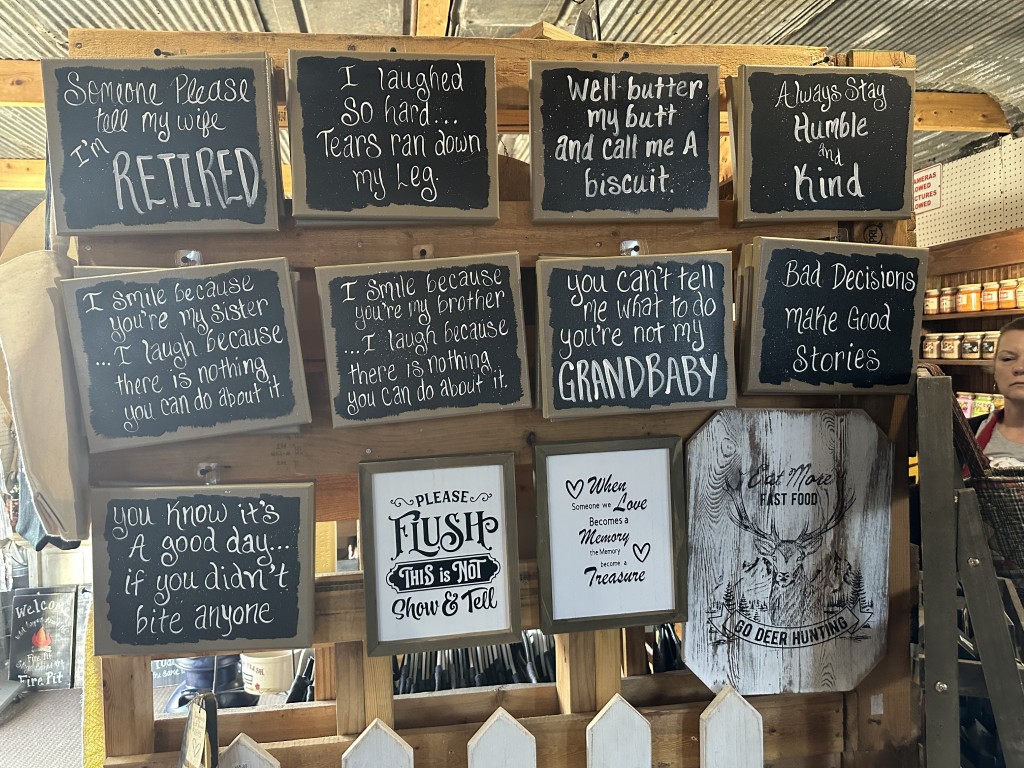 Someone Please
tell my wife
I'm
RETIRED
I laughed
SO hard...
Tears ran down
my Leg.
Well butter
my butt
and call me A
biscuit.
Always Stay
Humble
and
Kind
I smile because
you're my Sister
...I laugh because
there is nothing
you can do about it.
I smile because
you're my brother
...I laugh because
there is nothing
you can do about it.
you can't tell
me what to do
you're not my
GRANDBABY
Bad Decisions
make Good
Stories
you know it's
A good day...
if you didn't
bite anyone
PLEASE
FLUSH
THIS is NOT
Show & Tell
When
Someone we Love
Becomes a
Memory
the Memory
become a
Treasure
Eat More
FAST FOOD
GO DEER HUNTING
Welcome
Fire Pit